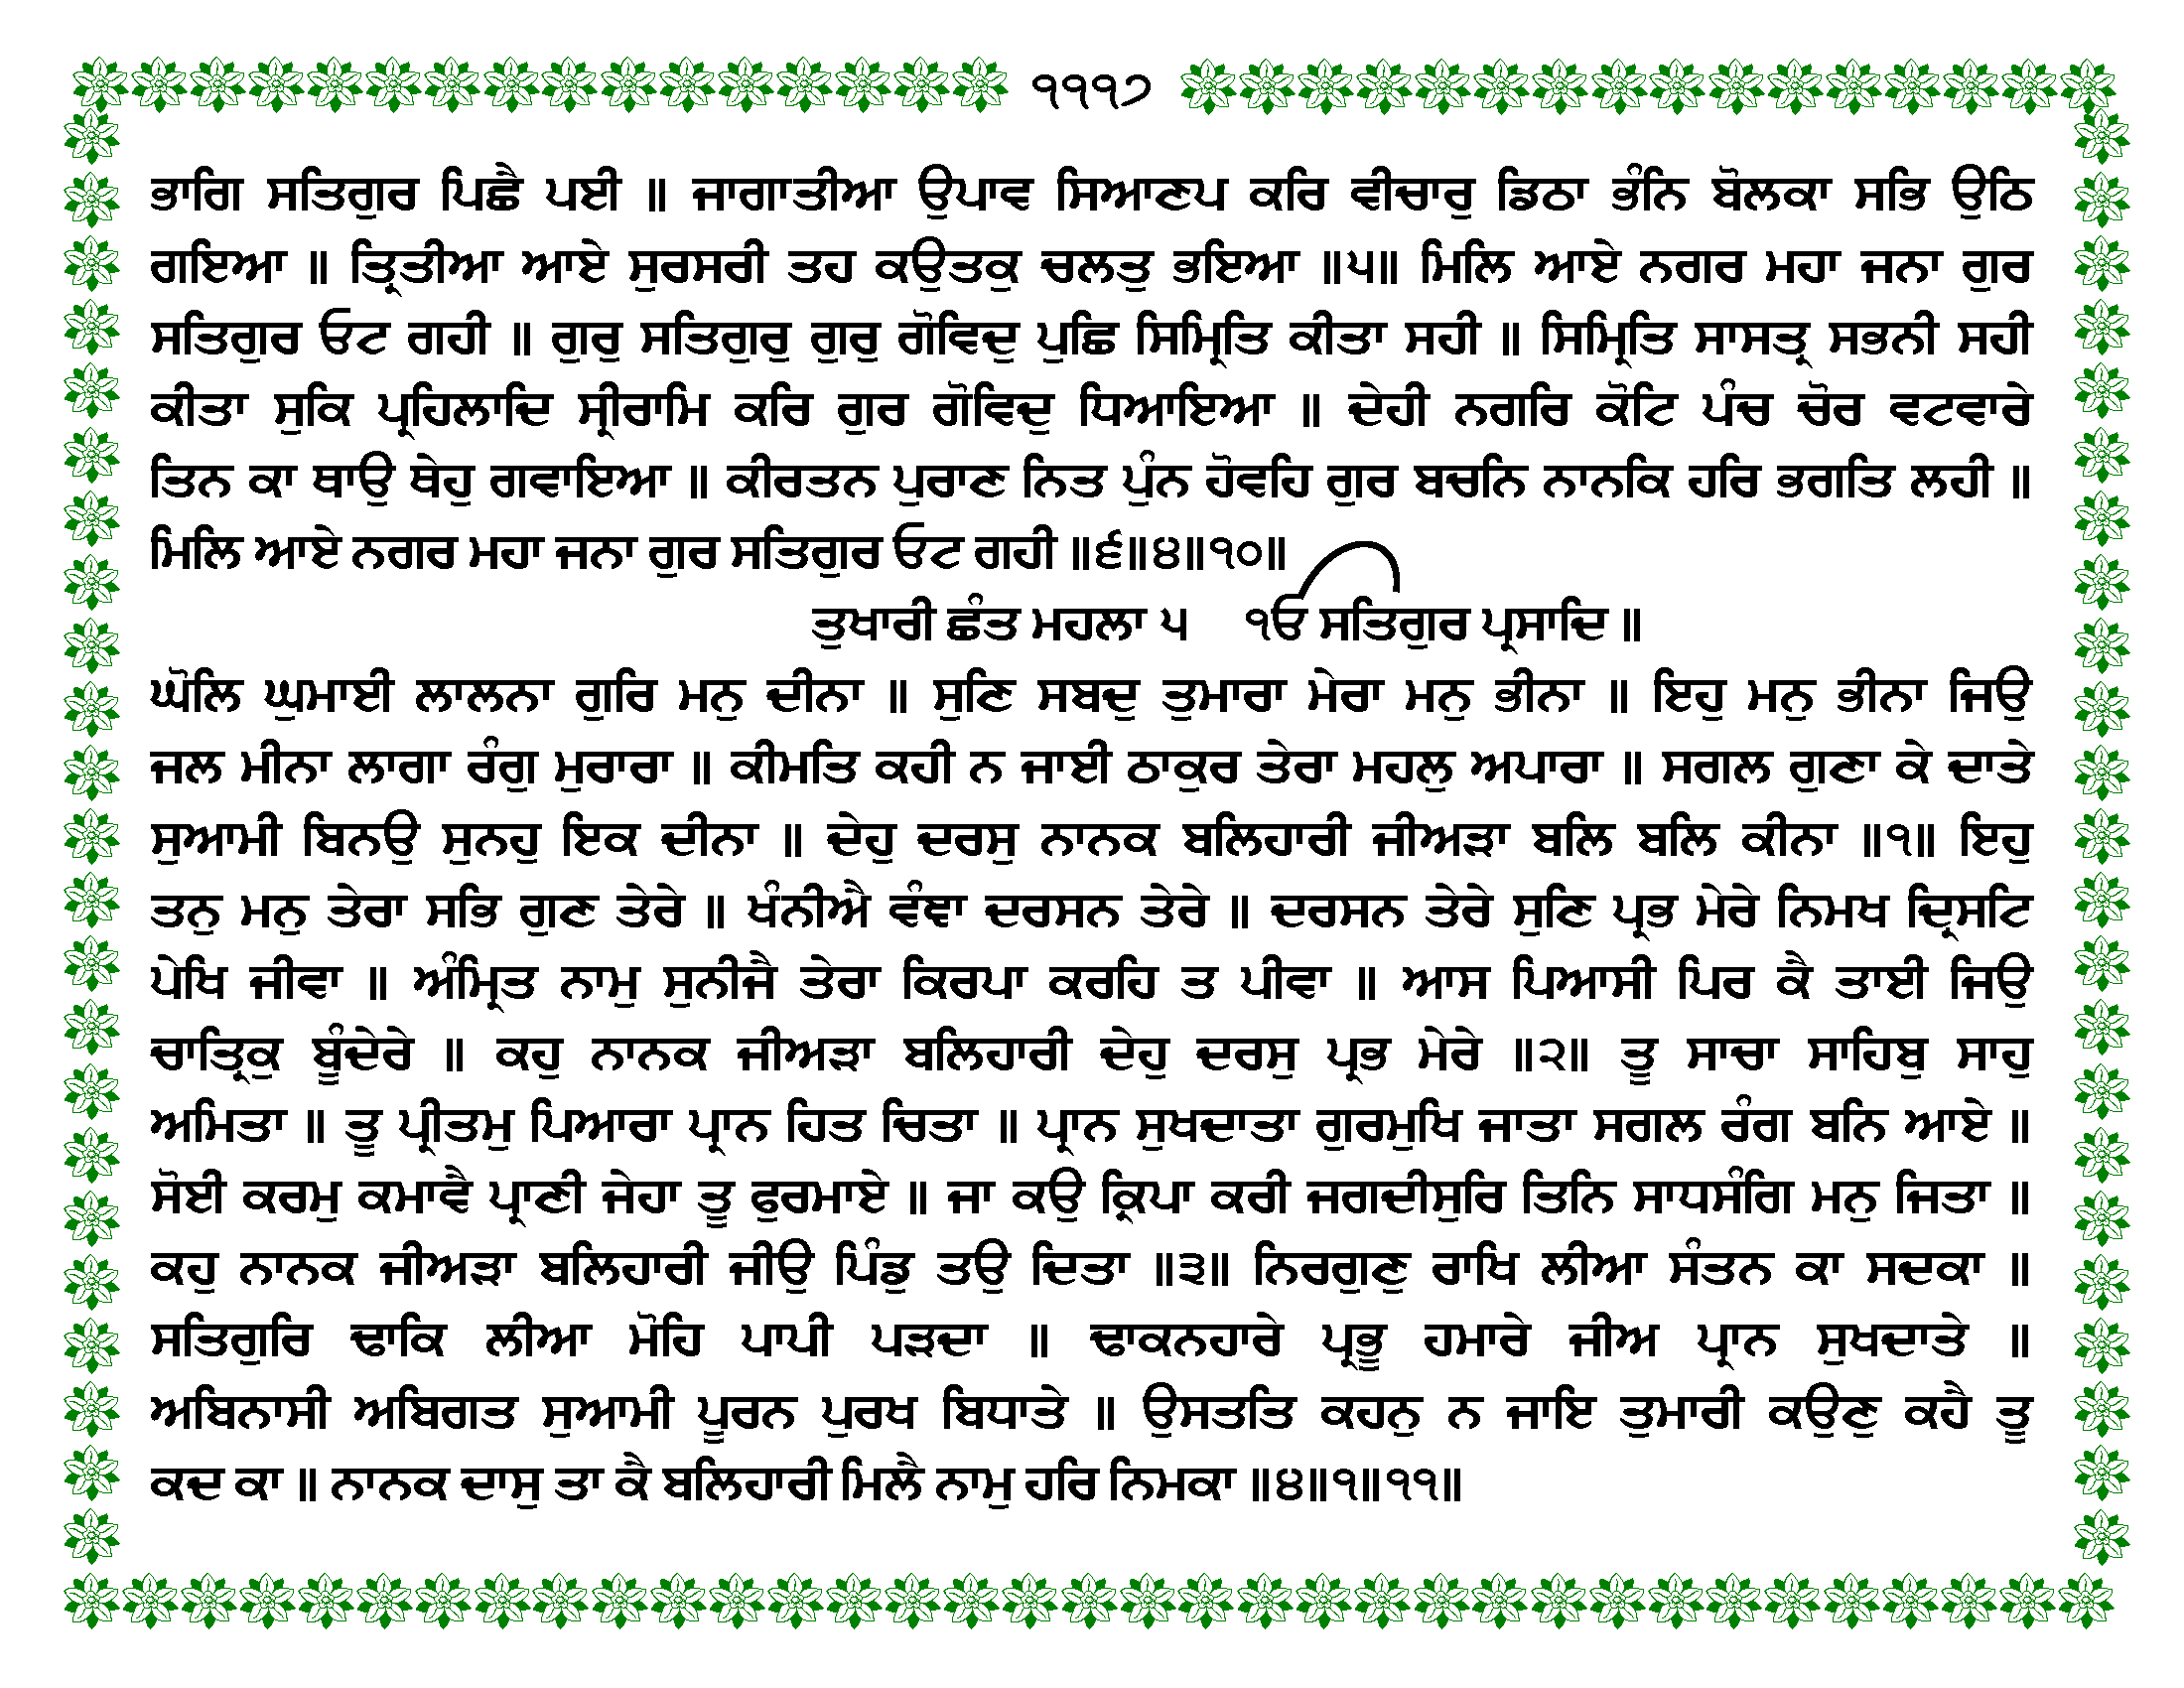 ੧੧੧੭
ਭਾਗਿ ਸਤਿਗੁਰ ਪਿਛੈ ਪਈ ॥ ਜਾਗਾਤੀਆ ਉਪਾਵ ਸਿਆਣਪ ਕਰਿ ਵੀਚਾਰੁ ਡਿਠਾ ਭੰਨਿ ਬੋਲਕਾ ਸਭਿ ਉਠਿ
ਗਇਆ ॥ ਤ੍ਰਿਤੀਆ ਆਏ ਸੁਰਸਰੀ ਤਹ ਕਉਤਕੁ ਚਲਤੁ ਭਇਆ ॥੫॥ ਮਿਲਿ ਆਏ ਨਗਰ ਮਹਾ ਜਨਾ ਗੁਰ
ਸਤਿਗੁਰ ਓਟ ਗਹੀ ॥ ਗੁਰੁ ਸਤਿਗੁਰੁ ਗੁਰੁ ਗੋਵਿਦੁ ਪੁਛਿ ਸਿਮ੍ਰਿਤਿ ਕੀਤਾ ਸਹੀ ॥ ਸਿਮ੍ਰਿਤਿ ਸਾਸਤ੍ਰ ਸਭਨੀ ਸਹੀ
ਕੀਤਾ ਸੁਕਿ ਪ੍ਰਹਿਲਾਦਿ ਸ੍ਰੀਰਾਮਿ ਕਰਿ ਗੁਰ ਗੋਵਿਦੁ ਧਿਆਇਆ ॥ ਦੇਹੀ ਨਗਰਿ ਕੋਟਿ ਪੰਚ ਚੋਰ ਵਟਵਾਰੇ
ਤਿਨ ਕਾ ਥਾਉ ਥੇਹੁ ਗਵਾਇਆ ॥ ਕੀਰਤਨ ਪੁਰਾਣ ਨਿਤ ਪੁੰਨ ਹੋਵਹਿ ਗੁਰ ਬਚਨਿ ਨਾਨਕਿ ਹਰਿ ਭਗਤਿ ਲਹੀ ॥
ਮਿਲਿ ਆਏ ਨਗਰ ਮਹਾ ਜਨਾ ਗੁਰ ਸਤਿਗੁਰ ਓਟ ਗਹੀ ॥੬॥੪॥੧੦॥
ਤੁਖਾਰੀ ਛੰਤ ਮਹਲਾ ੫ ੴ ਸਤਿਗੁਰ ਪ੍ਰਸਾਦਿ ॥
ਘੋਲਿ ਘੁਮਾਈ ਲਾਲਨਾ ਗੁਰਿ ਮਨੁ ਦੀਨਾ ॥ ਸੁਣਿ ਸਬਦੁ ਤੁਮਾਰਾ ਮੇਰਾ ਮਨੁ ਭੀਨਾ ॥ ਇਹੁ ਮਨੁ ਭੀਨਾ ਜਿਉ
ਜਲ ਮੀਨਾ ਲਾਗਾ ਰੰਗੁ ਮੁਰਾਰਾ ॥ ਕੀਮਤਿ ਕਹੀ ਨ ਜਾਈ ਠਾਕੁਰ ਤੇਰਾ ਮਹਲੁ ਅਪਾਰਾ ॥ ਸਗਲ ਗੁਣਾ ਕੇ ਦਾਤੇ
ਸੁਆਮੀ ਬਿਨਉ ਸੁਨਹੁ ਇਕ ਦੀਨਾ ॥ ਦੇਹੁ ਦਰਸੁ ਨਾਨਕ ਬਲਿਹਾਰੀ ਜੀਅੜਾ ਬਲਿ ਬਲਿ ਕੀਨਾ ॥੧॥ ਇਹੁ
ਤਨੁ ਮਨੁ ਤੇਰਾ ਸਭਿ ਗੁਣ ਤੇਰੇ ॥ ਖੰਨੀਐ ਵੰਞਾ ਦਰਸਨ ਤੇਰੇ ॥ ਦਰਸਨ ਤੇਰੇ ਸੁਣਿ ਪ੍ਰਭ ਮੇਰੇ ਨਿਮਖ ਦ੍ਰਿਸਟਿ
ਪੇਖਿ ਜੀਵਾ ॥ ਅੰਮ੍ਰਿਤ ਨਾਮੁ ਸੁਨੀਜੈ ਤੇਰਾ ਕਿਰਪਾ ਕਰਹਿ ਤ ਪੀਵਾ ॥ ਆਸ ਪਿਆਸੀ ਪਿਰ ਕੈ ਤਾਈ ਜਿਉ
ਚਾਤ੍ਰਿਕੁ ਬੂੰਦੇਰੇ ॥ ਕਹੁ ਨਾਨਕ ਜੀਅੜਾ ਬਲਿਹਾਰੀ ਦੇਹੁ ਦਰਸੁ ਪ੍ਰਭ ਮੇਰੇ ॥੨॥ ਤੂ ਸਾਚਾ ਸਾਹਿਬੁ ਸਾਹੁ
ਅਮਿਤਾ ॥ ਤੂ ਪ੍ਰੀਤਮੁ ਪਿਆਰਾ ਪ੍ਰਾਨ ਹਿਤ ਚਿਤਾ ॥ ਪ੍ਰਾਨ ਸੁਖਦਾਤਾ ਗੁਰਮੁਖਿ ਜਾਤਾ ਸਗਲ ਰੰਗ ਬਨਿ ਆਏ ॥
ਸੋਈ ਕਰਮੁ ਕਮਾਵੈ ਪ੍ਰਾਣੀ ਜੇਹਾ ਤੂ ਫੁਰਮਾਏ ॥ ਜਾ ਕਉ ਕ੍ਰਿਪਾ ਕਰੀ ਜਗਦੀਸੁਰਿ ਤਿਨਿ ਸਾਧਸੰਗਿ ਮਨੁ ਜਿਤਾ ॥
ਕਹੁ ਨਾਨਕ ਜੀਅੜਾ ਬਲਿਹਾਰੀ ਜੀਉ ਪਿੰਡੁ ਤਉ ਦਿਤਾ ॥੩॥ ਨਿਰਗੁਣੁ ਰਾਖਿ ਲੀਆ ਸੰਤਨ ਕਾ ਸਦਕਾ ॥
ਸਤਿਗੁਰਿ ਢਾਕਿ ਲੀਆ ਮੋਹਿ ਪਾਪੀ ਪੜਦਾ ॥ ਢਾਕਨਹਾਰੇ ਪ੍ਰਭੂ ਹਮਾਰੇ ਜੀਅ ਪ੍ਰਾਨ ਸੁਖਦਾਤੇ ॥
ਅਬਿਨਾਸੀ ਅਬਿਗਤ ਸੁਆਮੀ ਪੂਰਨ ਪੁਰਖ ਬਿਧਾਤੇ ॥ ਉਸਤਤਿ ਕਹਨੁ ਨ ਜਾਇ ਤੁਮਾਰੀ ਕਉਣੁ ਕਹੈ ਤੂ
ਕਦ ਕਾ ॥ ਨਾਨਕ ਦਾਸੁ ਤਾ ਕੈ ਬਲਿਹਾਰੀ ਮਿਲੈ ਨਾਮੁ ਹਰਿ ਨਿਮਕਾ ॥੪॥੧॥੧੧॥